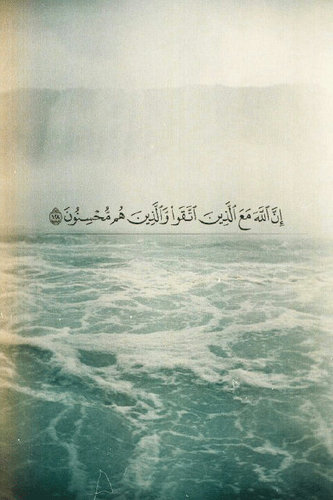 إِنَّ ٱللَّهَ مَعَ ٱلَّذِينَ ٱتَّقَوا۟ وَّٱلَّذِينَ هُم مُّحْسِنُونَ ١٢٨